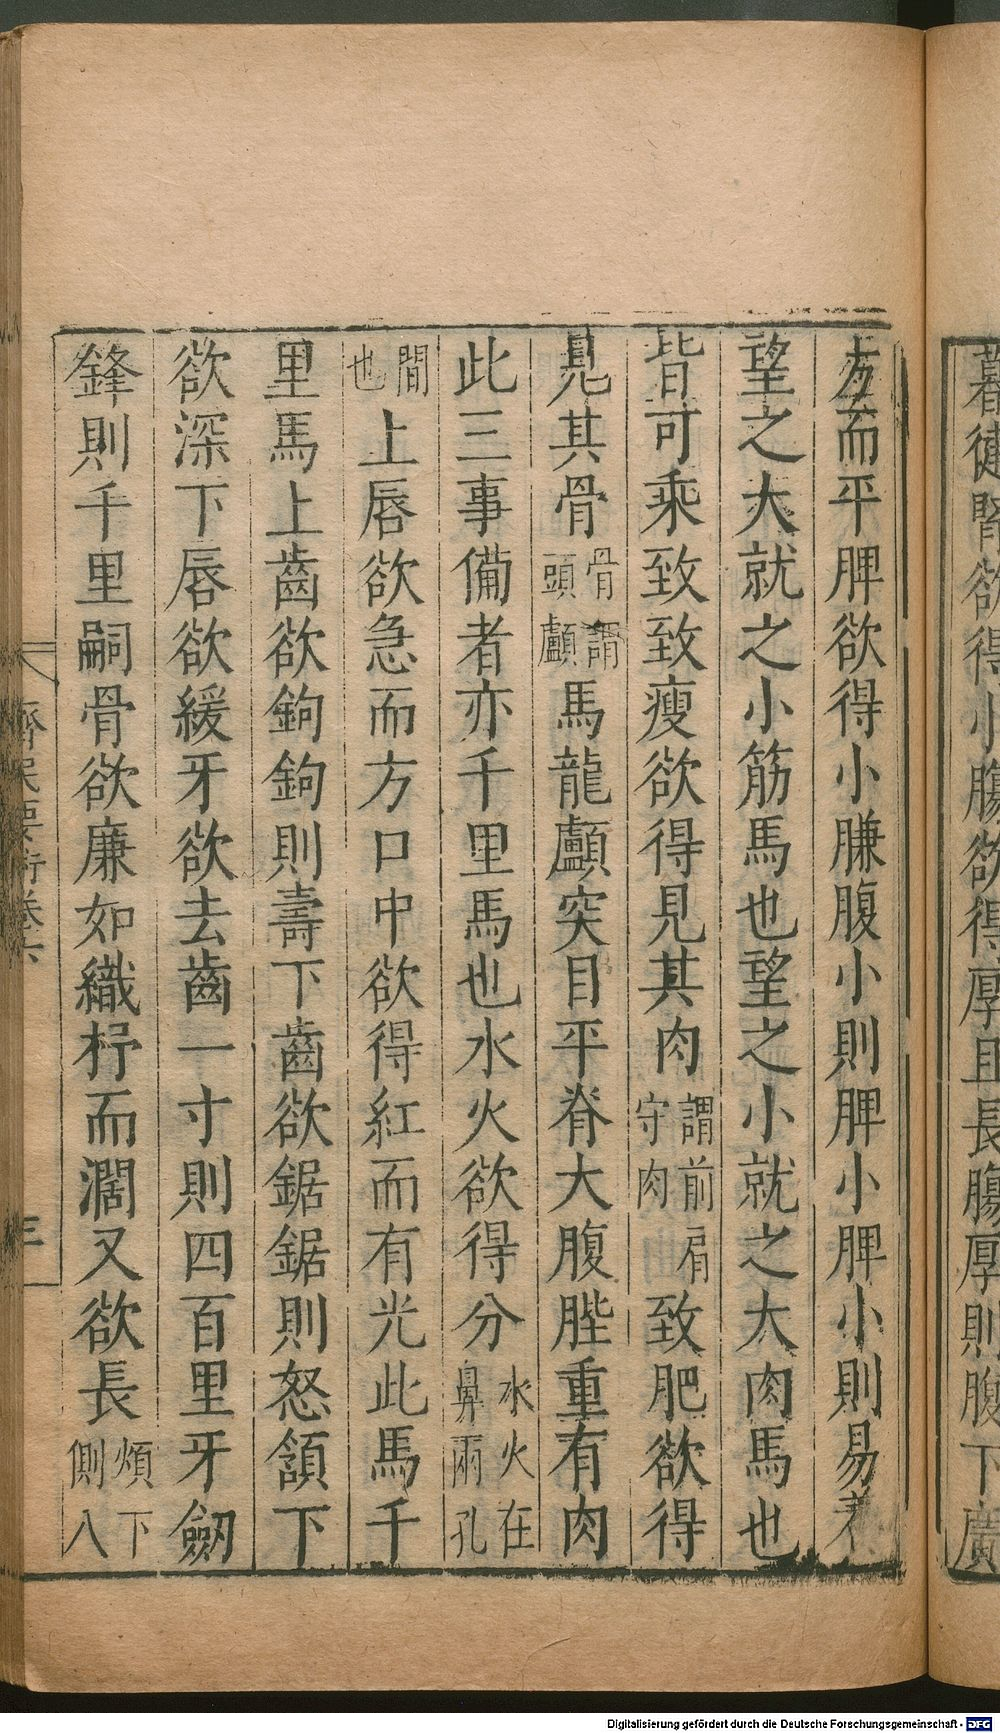 暮健腎欲得小腸欲得厚且長腸厚則腹下廣
方而平脾欲得小膁腹小則脾小脾小則易養
望之大就之小筋馬也望之小就之大肉馬也
皆可乘致致瘦欲得見其肉謂前肩守肉致肥欲得
見其骨骨謂頭顱馬龍顱突目平脊大腹䏶重有肉
此三事備者亦千里馬也水火欲得分水火在鼻兩孔
間也上唇欲急而方口中欲得紅而有光此馬千
里馬上齒欲鉤鉤則壽下齒欲鋸鋸則怒頷下
欲深下唇欲緩牙欲去齒一寸則四百里牙劒
鋒則千里嗣骨欲廉如織杼而濶又欲長煩下側八
齊民要術卷六
三
Digitalisierung gefördert durch die Deutsche Forschungsgemeinschaft - DFG